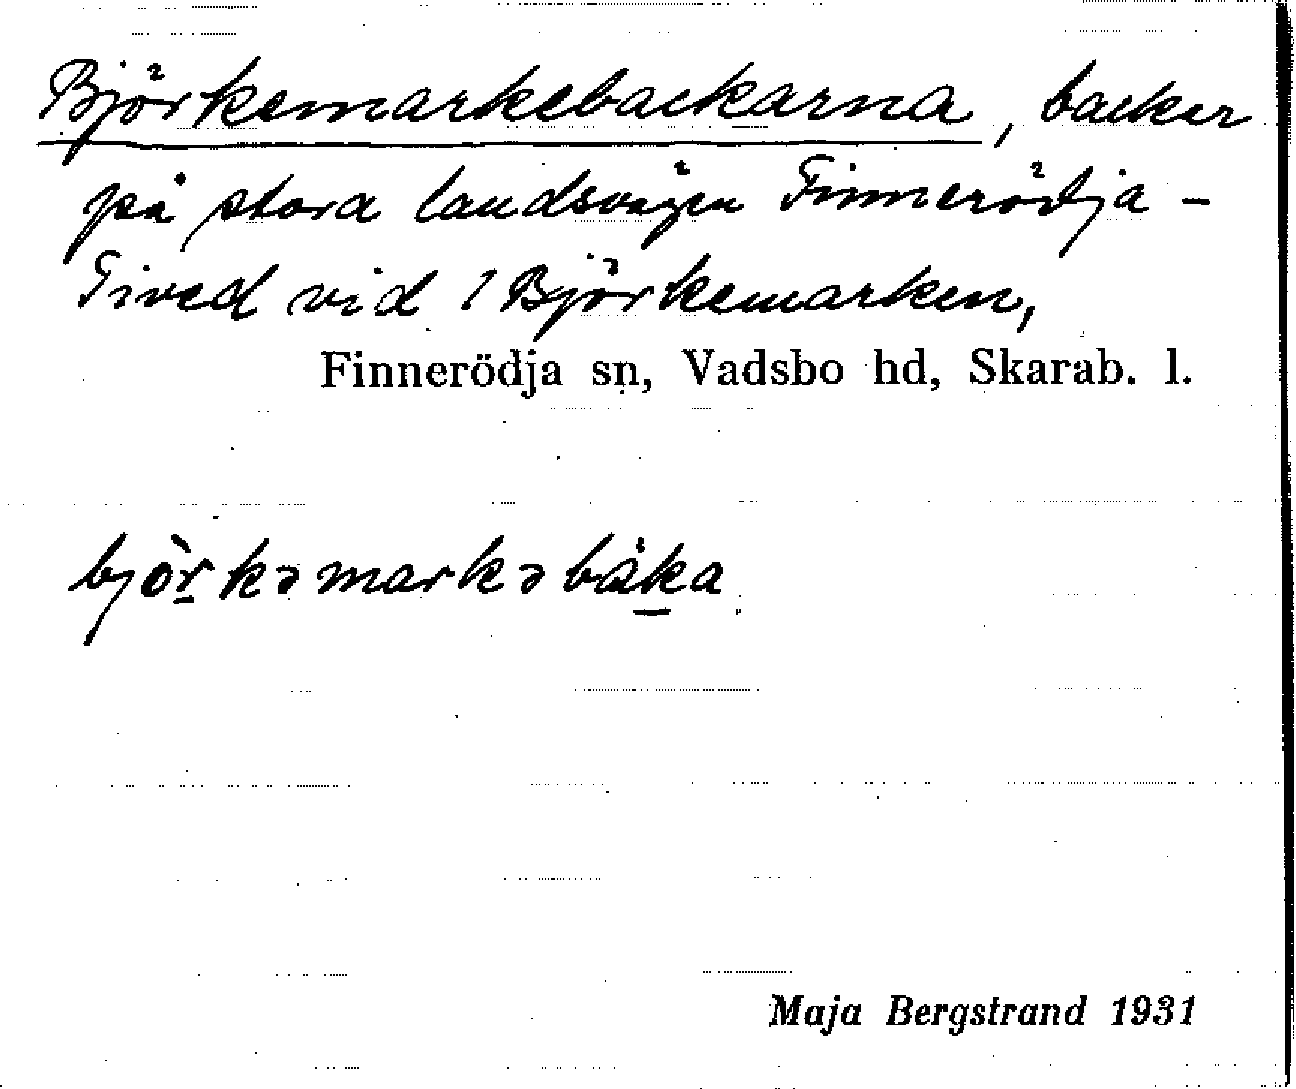 Björkemarkebackarna, backer
på stora landsvägen Finnerödja –
Tived vid 1 Björkemarken,
Finnerödja sn, Vadsbo hd, Skarab. l.
bjòrkəmarkəbàka
Maja Bergstrand 1931